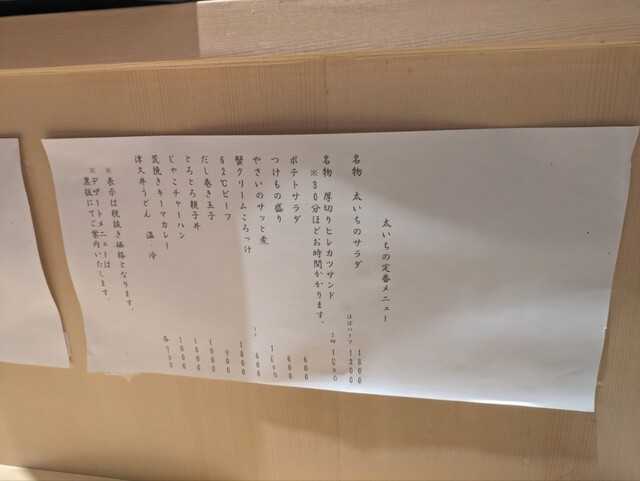 太いちの定番メニュー
名物 太いちのサラダ 1800
ハーフ 1200
名物 厚切りヒレカツサンド
※30分ほどお時間かかります。
ポテトサラダ 600
つけもの盛り 600
やさいのサッと煮
蟹クリームころっけ 600
62℃ビーフ 1800
だし巻き玉子 900
とろとろ親子丼 1000
じゃこチャーハン 1000
荒挽きキーマカレー 1000
津久井うどん 温・冷 各900
※表示は税抜き価格となります。
※デザートメニューは
黒板にてご案内いたします。